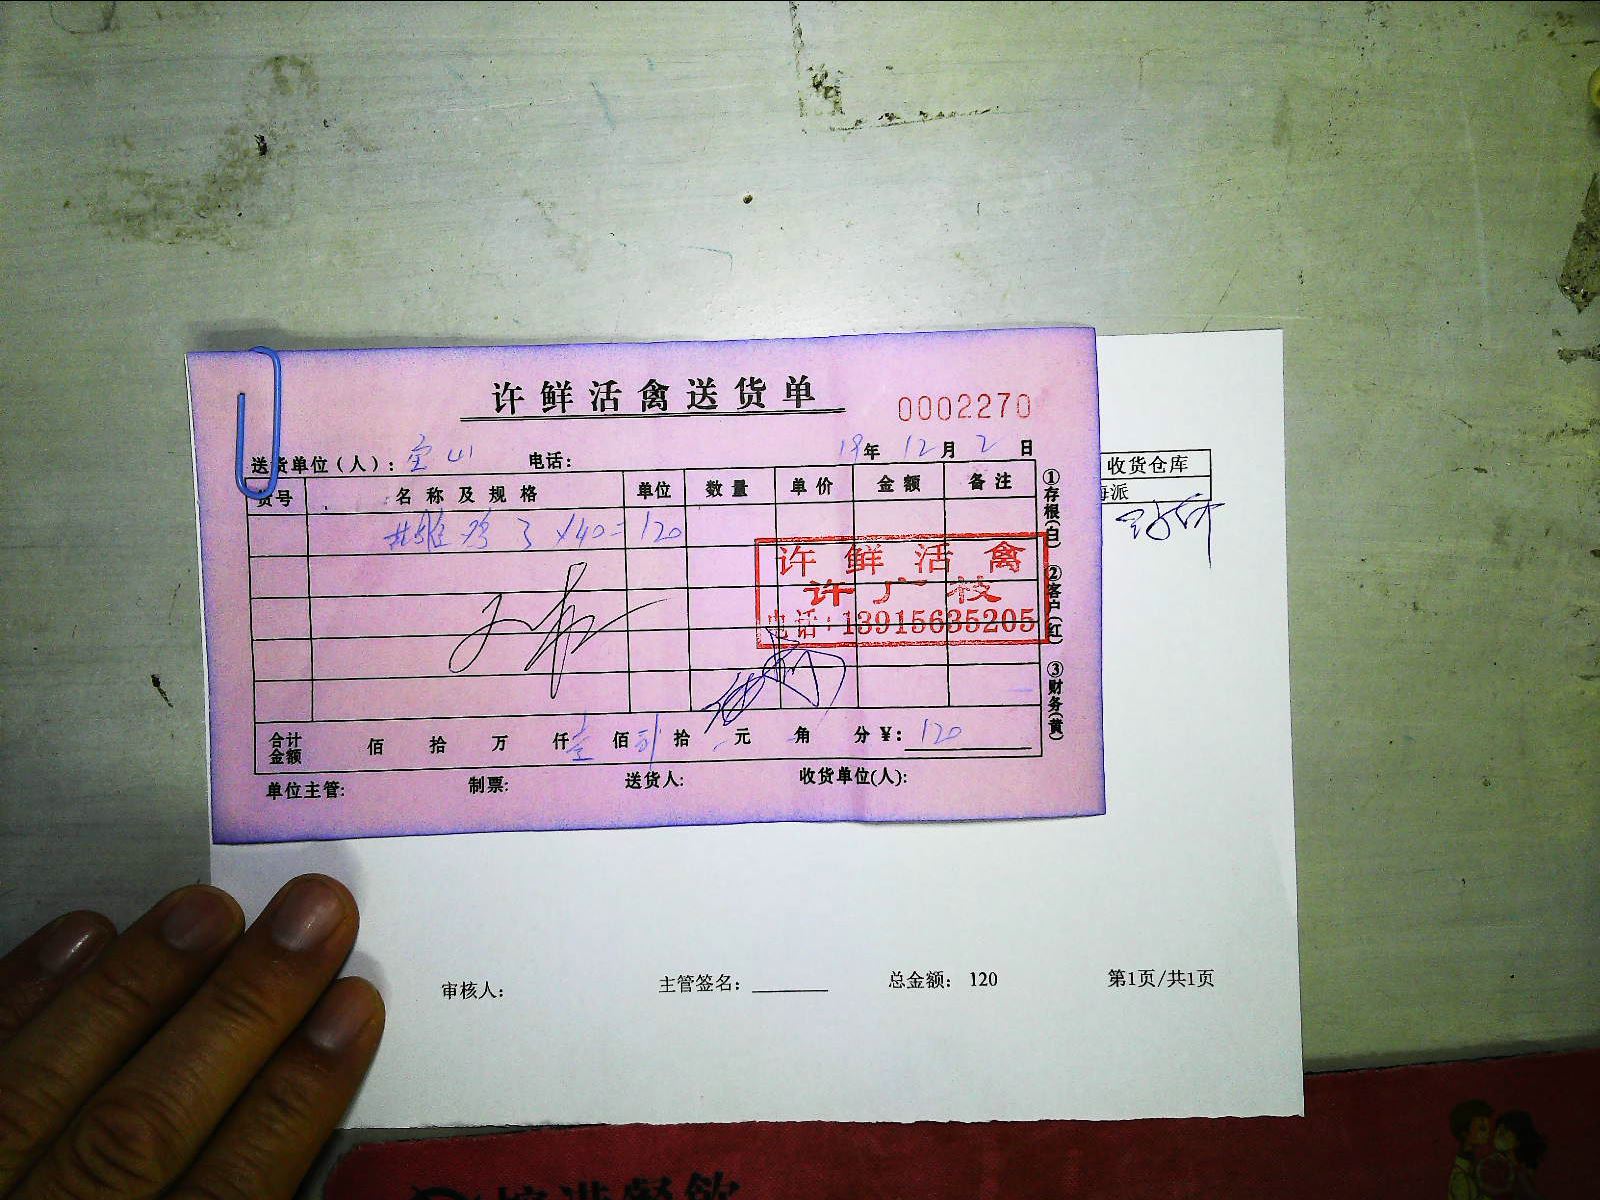 许鲜活禽送货单
0002270
送货单位（人）：宝山 电话： 19年12月2日
货号 名称及规格 单位 数量 单价 金额 备注
雄鸡 3 X40=120
许鲜活禽
许广枝
电话：13915635205
合计金额 佰 拾 万 仟 壹佰 贰拾 元 角 分 ¥：120
单位主管： 制票： 送货人： 收货单位(人)：
①存根(白) ②客户(红) ③财务(黄)
收货仓库
海派
审核人： 主管签名： 总金额： 120 第1页/共1页